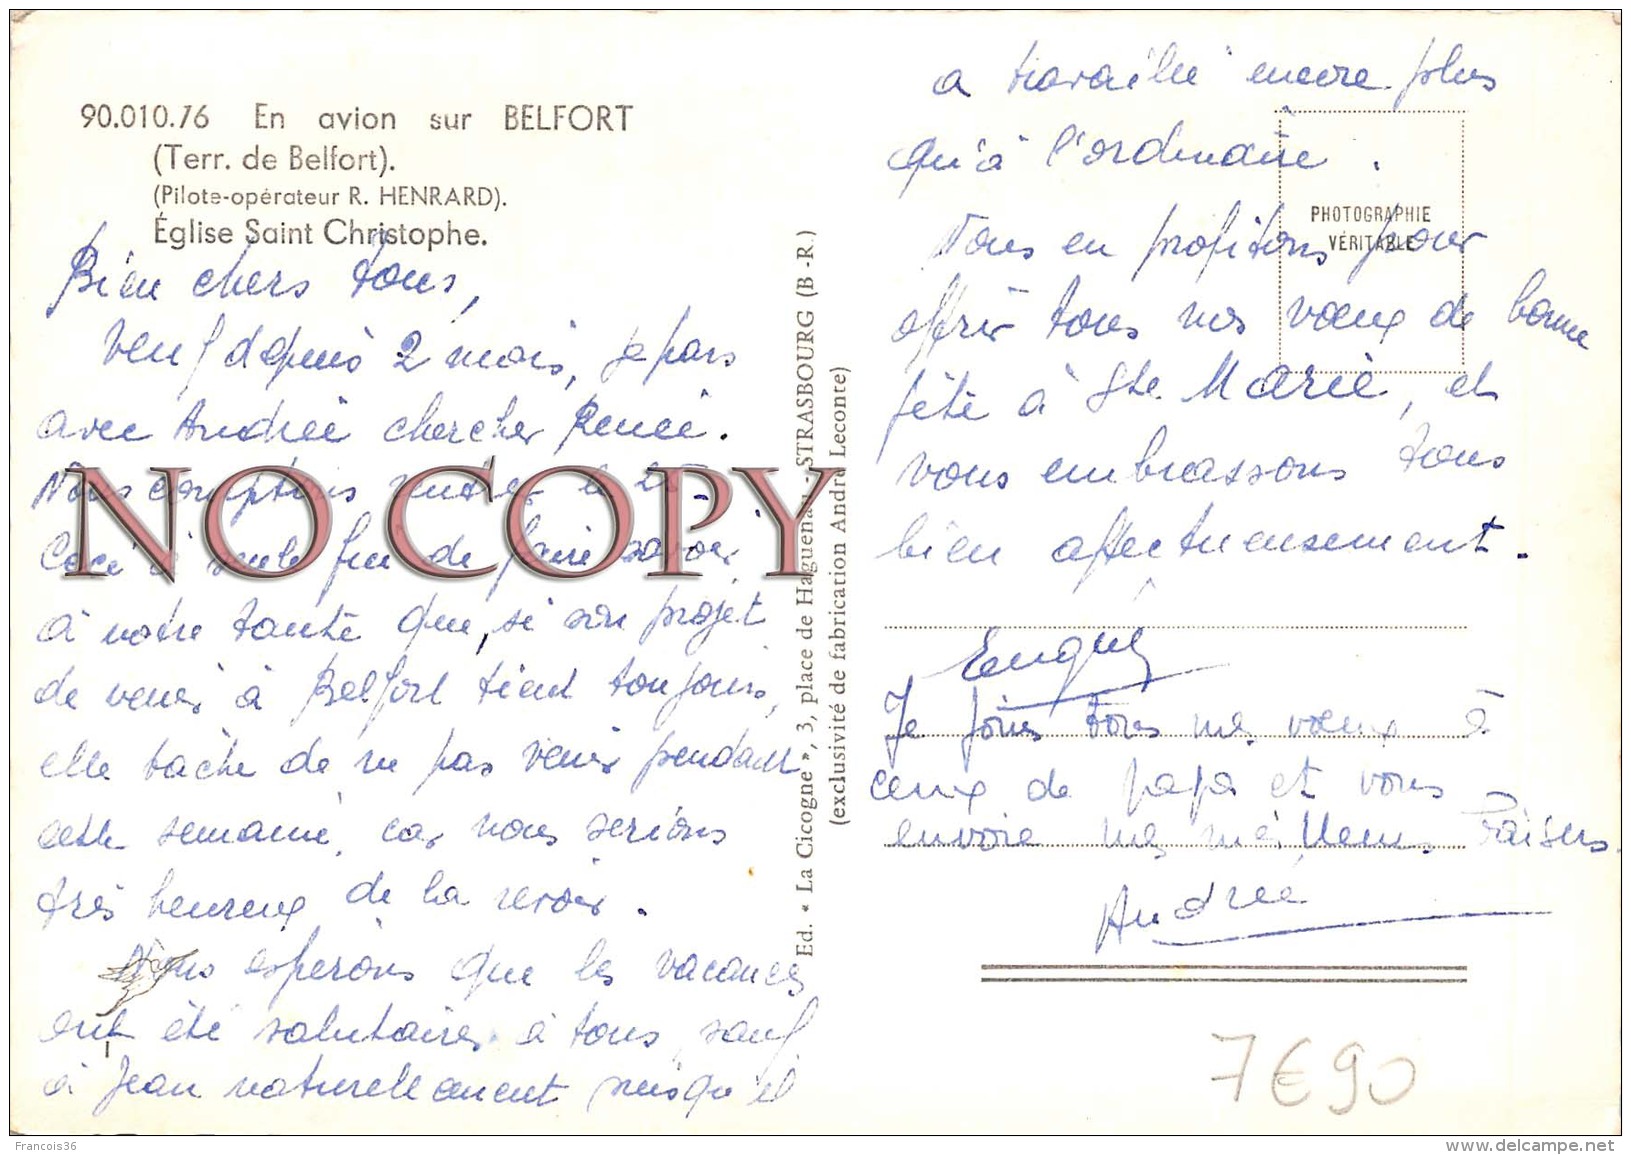 90.010.76 En avion sur BELFORT
(Terr. de Belfort).
(Pilote-opérateur R. HENRARD).
Église Saint Christophe.
Bien chers tous,
Veuf depuis 2 mois, je pars
avec Andrée chercher Renée.
Nous comptons rentrer le 25.
Ceci à seule fin de faire savoir
à notre tante que, si son projet
de venir à Belfort tient toujours,
elle tâche de ne pas venir pendant
cette semaine, car nous serions
très heureux de la revoir.
Nous espérons que les vacances
ont été salutaires à tous, sauf
à Jean naturellement puisqu'il
NO COPY
Ed. « La Cicogne », 3, place de Haguenau - STRASBOURG (B.-R.)
(exclusivité de fabrication André Leconte)
a travaillé encore plus
qu'à l'ordinaire.
PHOTOGRAPHIE
VÉRITABLE
Nous en profitons pour
offrir tous nos vœux de bonne
fête à Ste Marie, et
vous embrassons tous
bien affectueusement.
Je joins tous mes vœux à
ceux de papa et vous
envoie mes meilleurs baisers.
Andrée
7€90
Francois36
www.delcampe.net